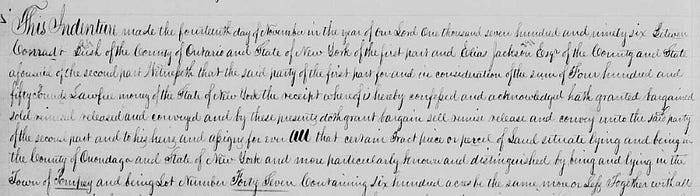 This Indenture made the fourteenth day of November in the year of our Lord One thousand seven hundred and ninety six Between
Conradt Bush of the County of Ontario and State of New York of the first part and Elias Jackson Esqr of the County and State
aforesaid of the second part Witnesseth that the said party of the first part for and in consideration of the sum of Four hundred and
fifty Pounds Lawful money of the State of New York the receipt whereof is hereby confessed and acknowledged hath granted bargained
sold remised released and conveyed and by these presents doth grant bargain sell remise release and convey unto the said party
of the second part and to his heirs and assigns for ever All that certain Tract piece or parcel of Land situate lying and being in
the County of Onondaga and State of New York and more particularly known and distinguished by being and lying in the
Town of Pompey and being Lot Number Forty Seven Containing six hundred acres be the same more or less Together with all